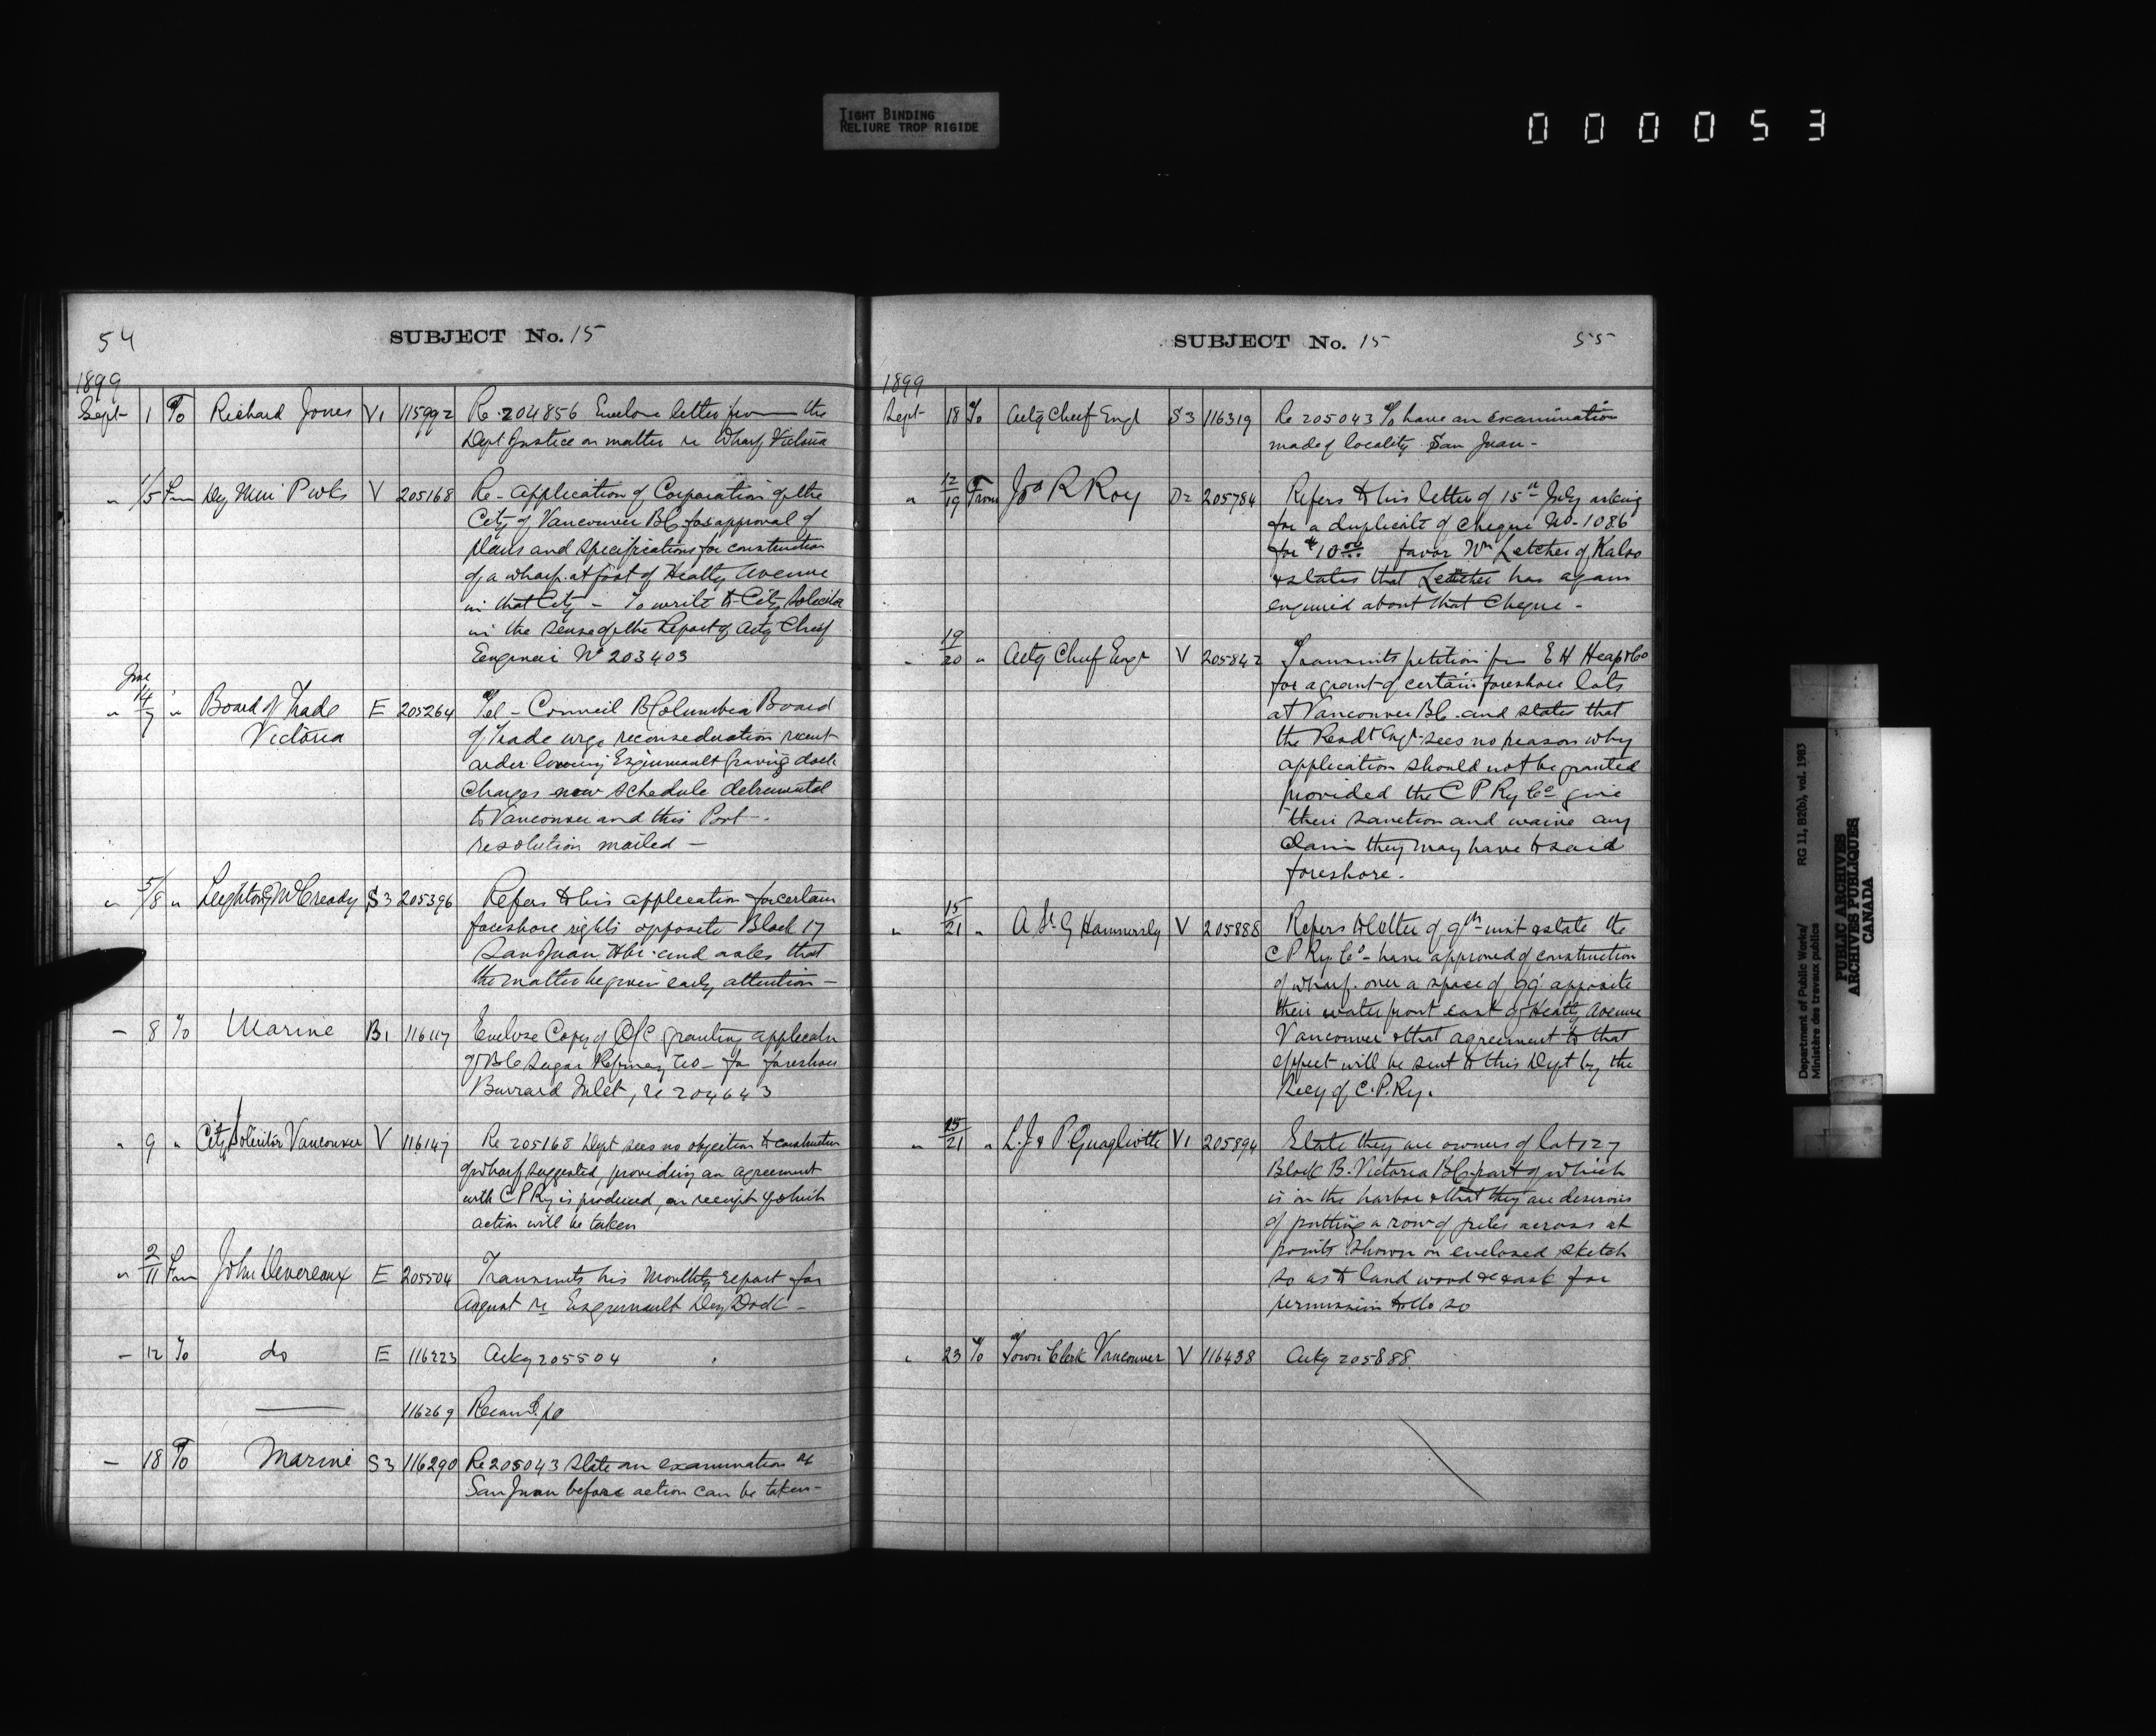 TIGHT BINDING
RELIURE TROP RIGIDE
0 0 0 0 5 3
54
SUBJECT No. 15
1899
Sept 1 To Richard Jones V1 115992 Re 204856 Enclose letter from the
Dept Justice on matter re Wharf Victoria
" 1/5 Frm Dey Min P wks V 205168 Re - application of Corporation of the
City of Vancouver BC for approval of
plans and specifications for construction
of a wharf at foot of Heatly Avenue
in that City - To write to City Solicitor
in the sense of the Report of Actg Chief
Engineer No 203403
" 14/7 " Board of Trade E 205264 Tel - Council B Columbia Board
Victoria of Trade urge reconsideration recent
order lowering Esquimault Graving dock
Charges new schedule detrimental
to Vancouver and this Port -
resolution mailed -
" 5/8 " Leighton & McCready S3 205396 Refers to his application for certain
foreshore rights opposite Block 17
San Juan Hbr. and asks that
the matter be given early attention -
- 8 To Marine B1 116117 Enclose Copy of O/C granting applicatn
of BC Sugar Refinery Co - for foreshore
Burrard Inlet, re 204643
" 9 " City Solicitor Vancouver V 116147 Re 205168 Dept sees no objection to construction
of wharf suggested, providing an agreement
with C P Ry is produced, on receipt of which
action will be taken
" 2/11 Frm John Devereaux E 205504 Transmits his Monthly report for
August re Esquimault Dry Dock -
- 12 To do E 116223 Ackg 205504
116269
- 18 To Marine S3 116290 Re 205043 state an examination at
San Juan before action can be taken -
SUBJECT No. 15
55
1899
Sept 18 To Actg Chief Engr S3 116319 Re 205043 To have an examination
made of locality San Juan -
" 12/19 From Jos R Roy D2 205784 Refers to his letter of 15th July asking
for a duplicate of cheque No - 1086
for $10.00 favor Wm Letcher of Kalso
& states that Letcher has again
enquired about that Cheque -
" 19/20 " Actg Chief Engr V 205842 Transmits petition frm E H Heap & Co
for a grant of certain foreshore lots
at Vancouver BC. and states that
the Resdt Engr sees no reason why
application should not be granted
provided the C P Ry Co give
their sanction and waive any
claim they may have to said
foreshore.
" 15/21 " A St G Hammersly V 205888 Refers to letter of 9th inst & state the
C P Ry Co - have approved of construction
of wharf over a space of 99' opposite
their waterfront east of Heatly Avenue
Vancouver & that agreement to that
effect will be sent to this Dept by the
Secy of C.P.Ry.
" 15/21 " L. J & P. Quagliotti V1 205894 State they are owners of lot 127
Block B. Victoria BC part of which
is in the harbor & that they are desirous
of putting a row of piles across at
points shown on enclosed sketch
so as to land wood &c & ask for
permission to do so
" 23 To Town Clerk Vancouver V 116438 Ackg 205888.
Department of Public Works/ RG 11, B2(b), vol. 1983
Ministère des travaux publics
PUBLIC ARCHIVES
ARCHIVES PUBLIQUES
CANADA